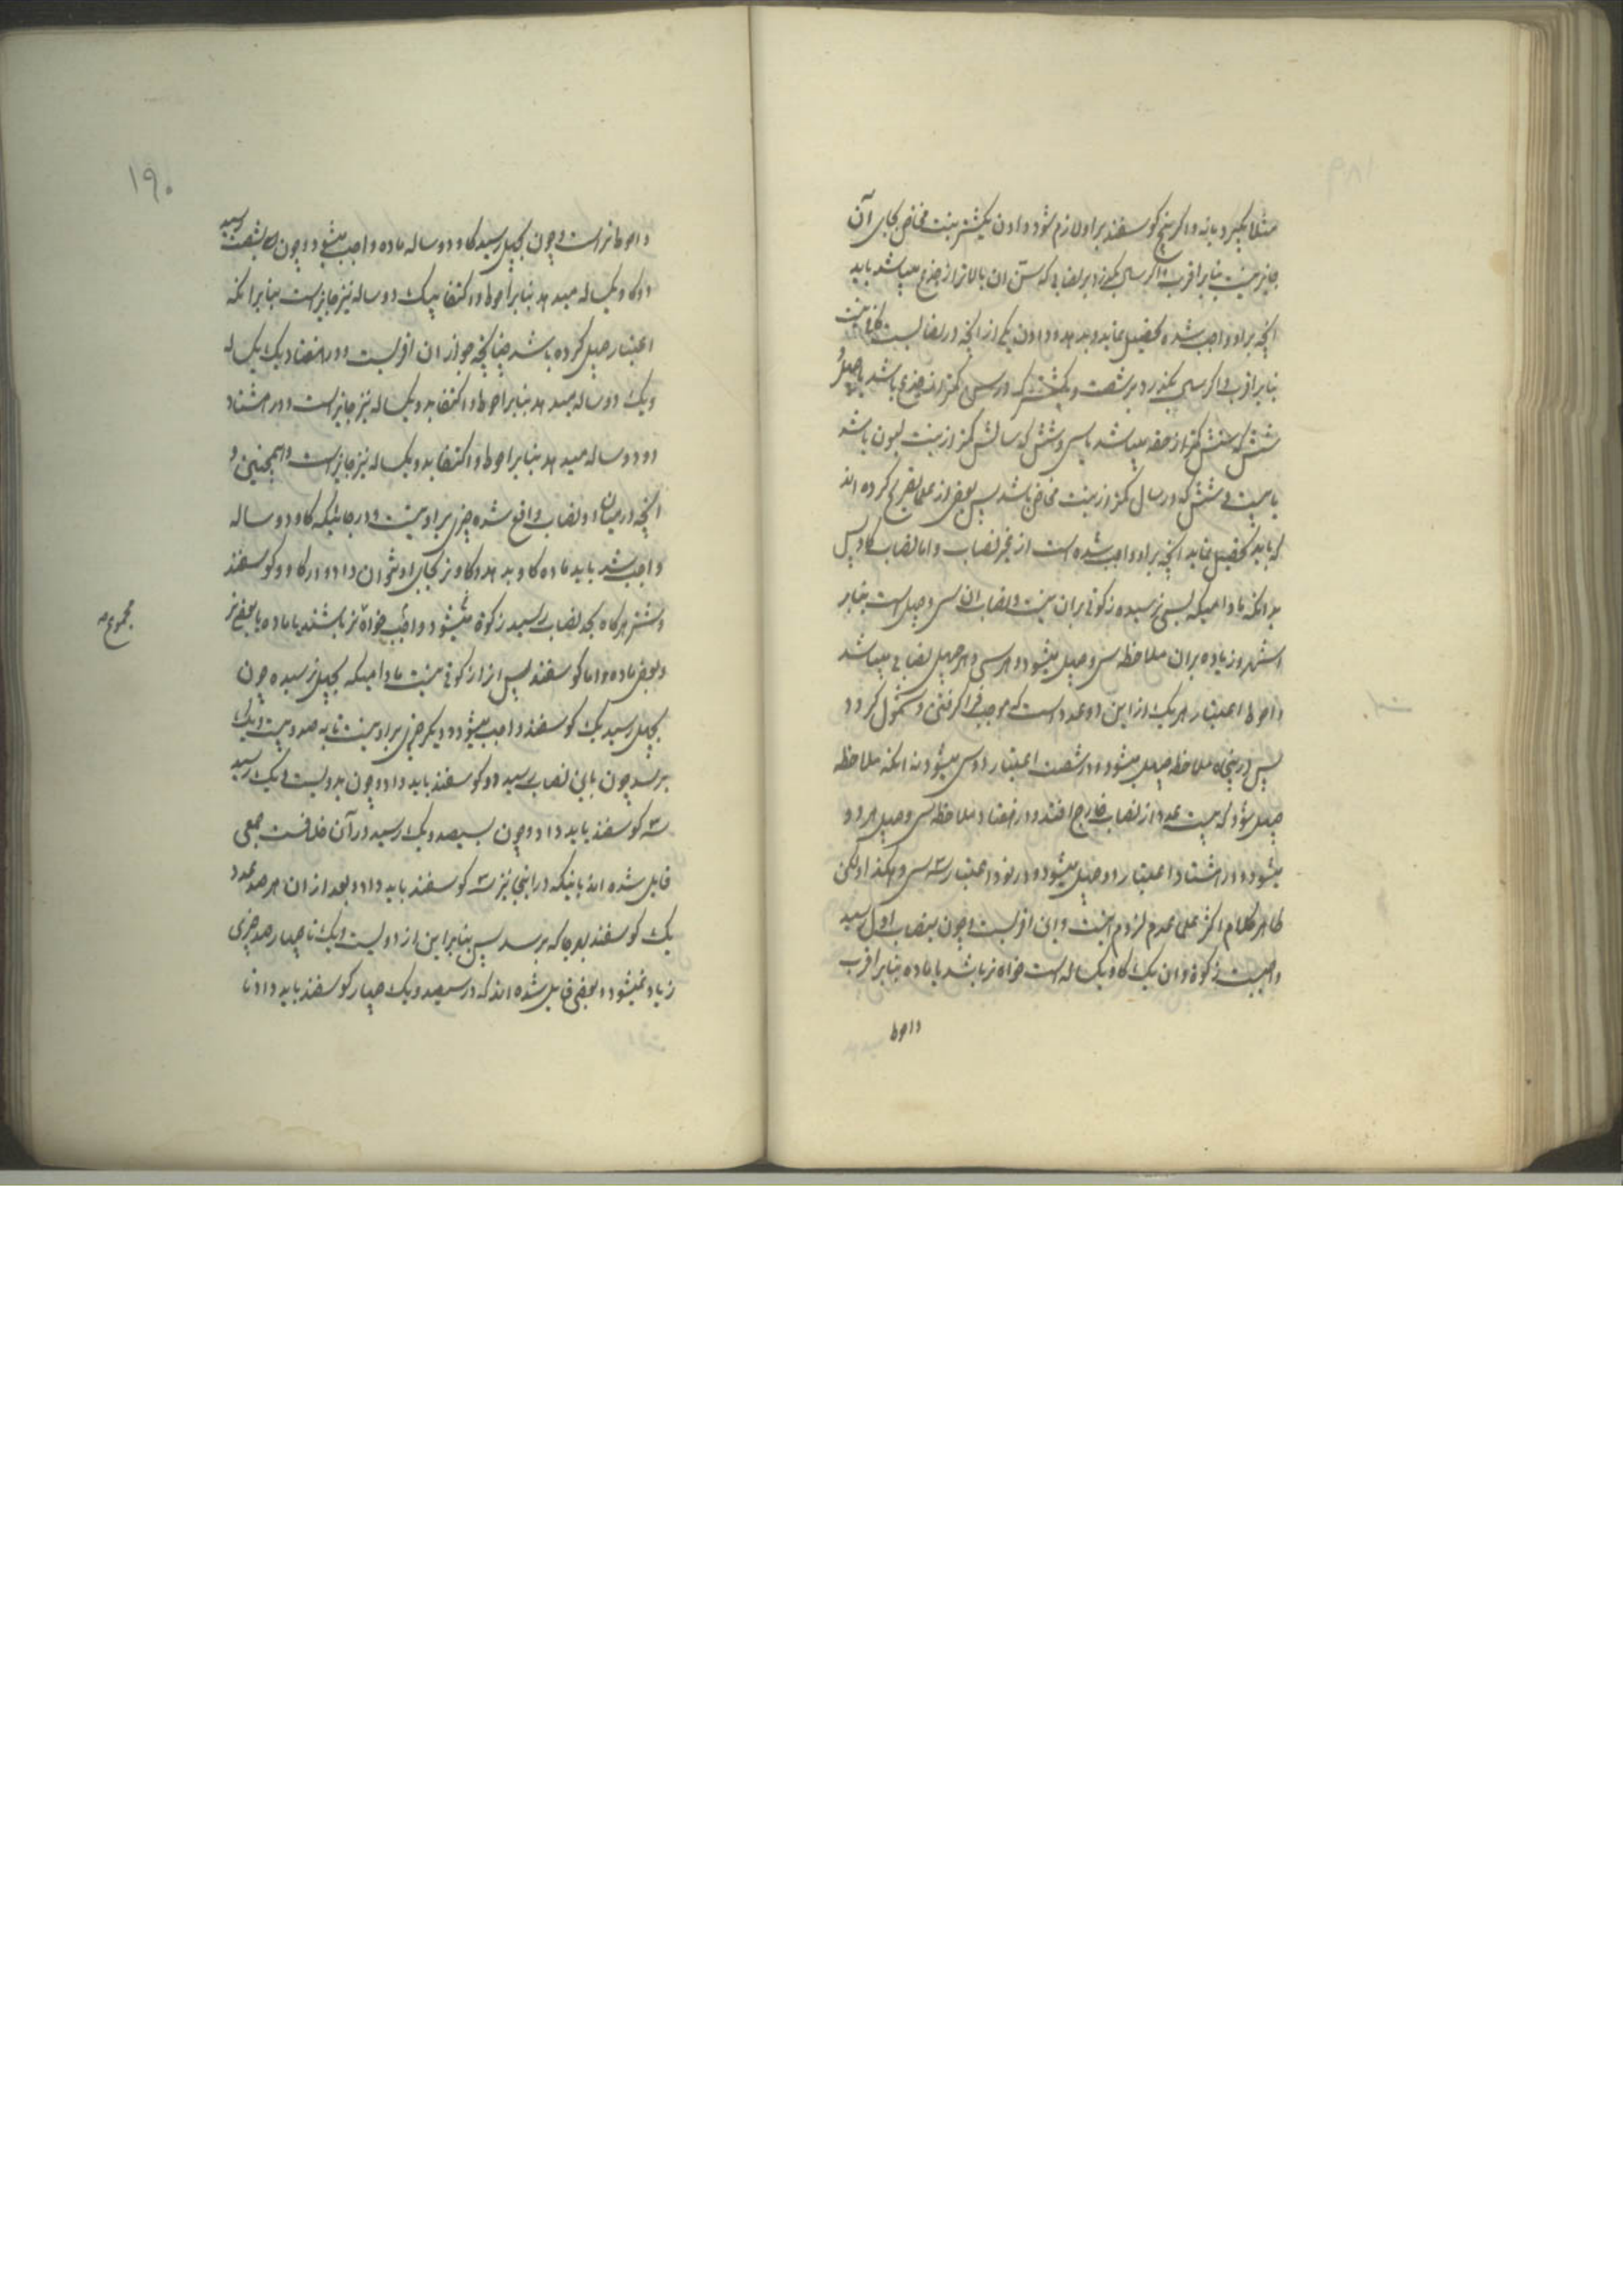 مثلا بگیرد یا نه و اگر پنج گوسفند بر او لازم شود دادن یکشتر بنت مخاض بجای آن
جایز نیست بنابر اقرب و اگر سالی بگذرد بر نصابی که سن آن بالاتر از جذع میباشد باید
آنچه بر او واجب شده تحصیل نماید و بدهد و دادن یکی از آنچه در نصابست کافی نیست
بنابر اقرب و اگر سالی بگذرد بر شصت و یکشتر که در سن کمتر از جذع باشد یا چهل و
شش که سنش کمتر از حقه میباشد یا سی و شش که سالش کمتر از بنت لبون باشد
یا بیست و شش که در سال کمتر از بنت مخاض باشد پس بعضی از علما تصریح کرده اند
که باید تحصیل نماید آنچه بر او واجب شده است از غیر نصاب و اما نصاب گاو پس
بدانکه مادامیکه بسی نرسیده زکوتی بر آن نیست و نصاب آن سی و چهل است بنابر
اشهر و زیاده بر آن ملاحظه سی و چهل میشود و هر سی و هر چهل نصابی میباشد
و احوط اعتبار هر یک از این دو عدد است که موجب فرا گرفتن و شمول گردد
پس در پنجاه ملاحظه چهل میشود و در شصت اعتبار دو سی میشود نه آنکه ملاحظه
چهل شود که بیست عدد از نصاب خارج افتد و در هفتاد ملاحظه سی و چهل هر دو
میشود و در هشتاد اعتبار دو چهل میشود و در نود اعتبار سه سی و هکذا و لکن
ظاهر کلام اکثر علما عدم لزوم اینست و این اقویست و چون بنصاب اول رسید
واجبست زکوة و آن یک گاو یکساله است خواه نر باشد یا ماده بنابر اقرب
و احوط
۱۹۰
و احوط نر است و چون بچهل رسید گاو دو ساله ماده واجب میشود و چون بشصت رسید
دو گاو یکساله میدهد بنابر احوط و اکتفا بیک دو ساله نیز جایز است بنابر آنکه
اعتبار چهل کرده باشد چنانکه جواز آن اقویست و در هفتاد یک یکساله
و یک دو ساله میدهد بنابر احوط و اکتفا بدو یکساله نیز جایز است و در هشتاد
دو دو ساله میدهد بنابر احوط و اکتفا بدو یکساله نیز جایز است و همچنین و
آنچه در میان دو نصاب واقع شده چیزی بر او نیست و در جائیکه گاو دو ساله
واجب شد باید ماده گاو بدهد و گاو نر بجای او نتوان داد و در گاو و گوسفند
و شتر هرگاه بحد نصاب رسید زکوة میشود و واجب خواه نر باشند یا ماده یا بعضی نر
مجموع
و بعضی ماده و اما گوسفند پس از زکوتی نیست مادامیکه بچهل نرسیده چون
بچهل رسید یک گوسفند واجب میشود و دیگر چیزی بر او نیست تا به صد و بیست و یک
برسد چون باین نصاب رسید دو گوسفند باید داد و چون بدویست و یک رسید
سه گوسفند باید داد و چون بسیصد و یک رسید در آن خلافست جمعی
قایل شده اند باینکه در اینجا نیز سه گوسفند باید داد و بعد از آن هر صد عدد
یک گوسفند بهر جا که برسد پس بنابر این از دویست و یک تا چهار صد چیزی
زیاد نمیشود و بعضی قایل شده اند که در سیصد و یک چهار گوسفند باید داد تا